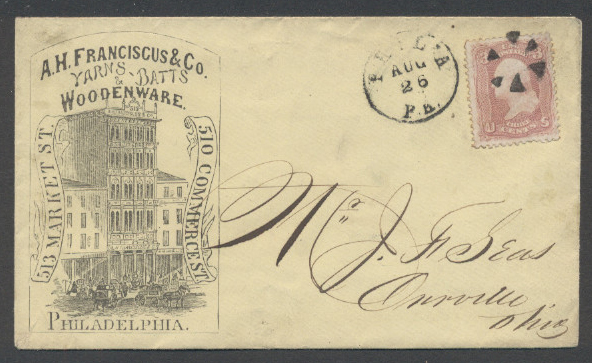 A.H. FRANCISCUS & CO.
YARNS & BATTS
WOODENWARE.
513 MARKET ST
510 COMMERCE ST
PHILADELPHIA.
PHILA
AUG
26
PA.
U CENTS S
Mr. J. F. Seas
Orrville
Ohio